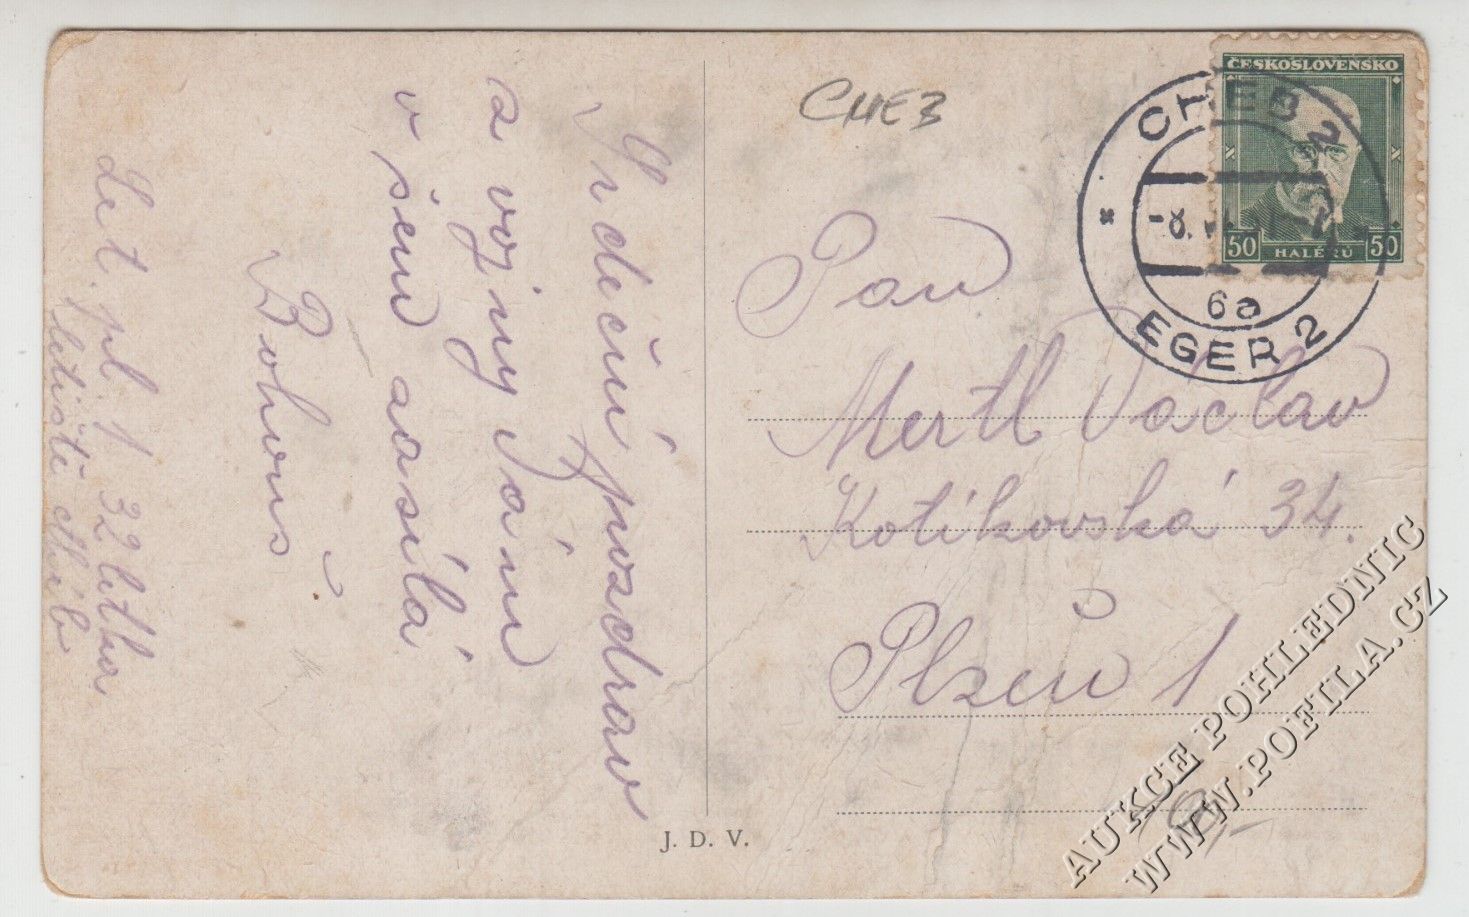 Srdečný pozdrav
a vojny Vám
v šem zasílá
Bohouš
Let. pl. 1 32 letka
letiště Cheb
J. D. V.
CHEB
ČESKOSLOVENSKO
50 HALÉŘŮ 50
CHEB 2
-8.
6a
EGER 2
Pan
Mertl Václav
Kotíkovská 34.
Plzeň 1
AUKCE POHLEDNIC
WWW.POFILA.CZ